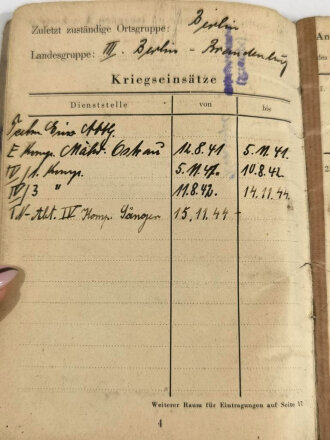 Zuletzt zuständige Ortsgruppe: Berlin
Landesgruppe: III. Berlin - Brandenburg
Kriegseinsätze
Dienststelle von bis
Techn
E Komp. Mähr. Ostrau 12.8.41 5.11.41.
IV/1. Komp. 5.11.41. 10.8.42.
IV/3 " 11.8.42. 14.11.44.
TN-Abt. IV Komp. 15.11.44 -
Weiterer Raum für Eintragungen auf Seite 17
4
An